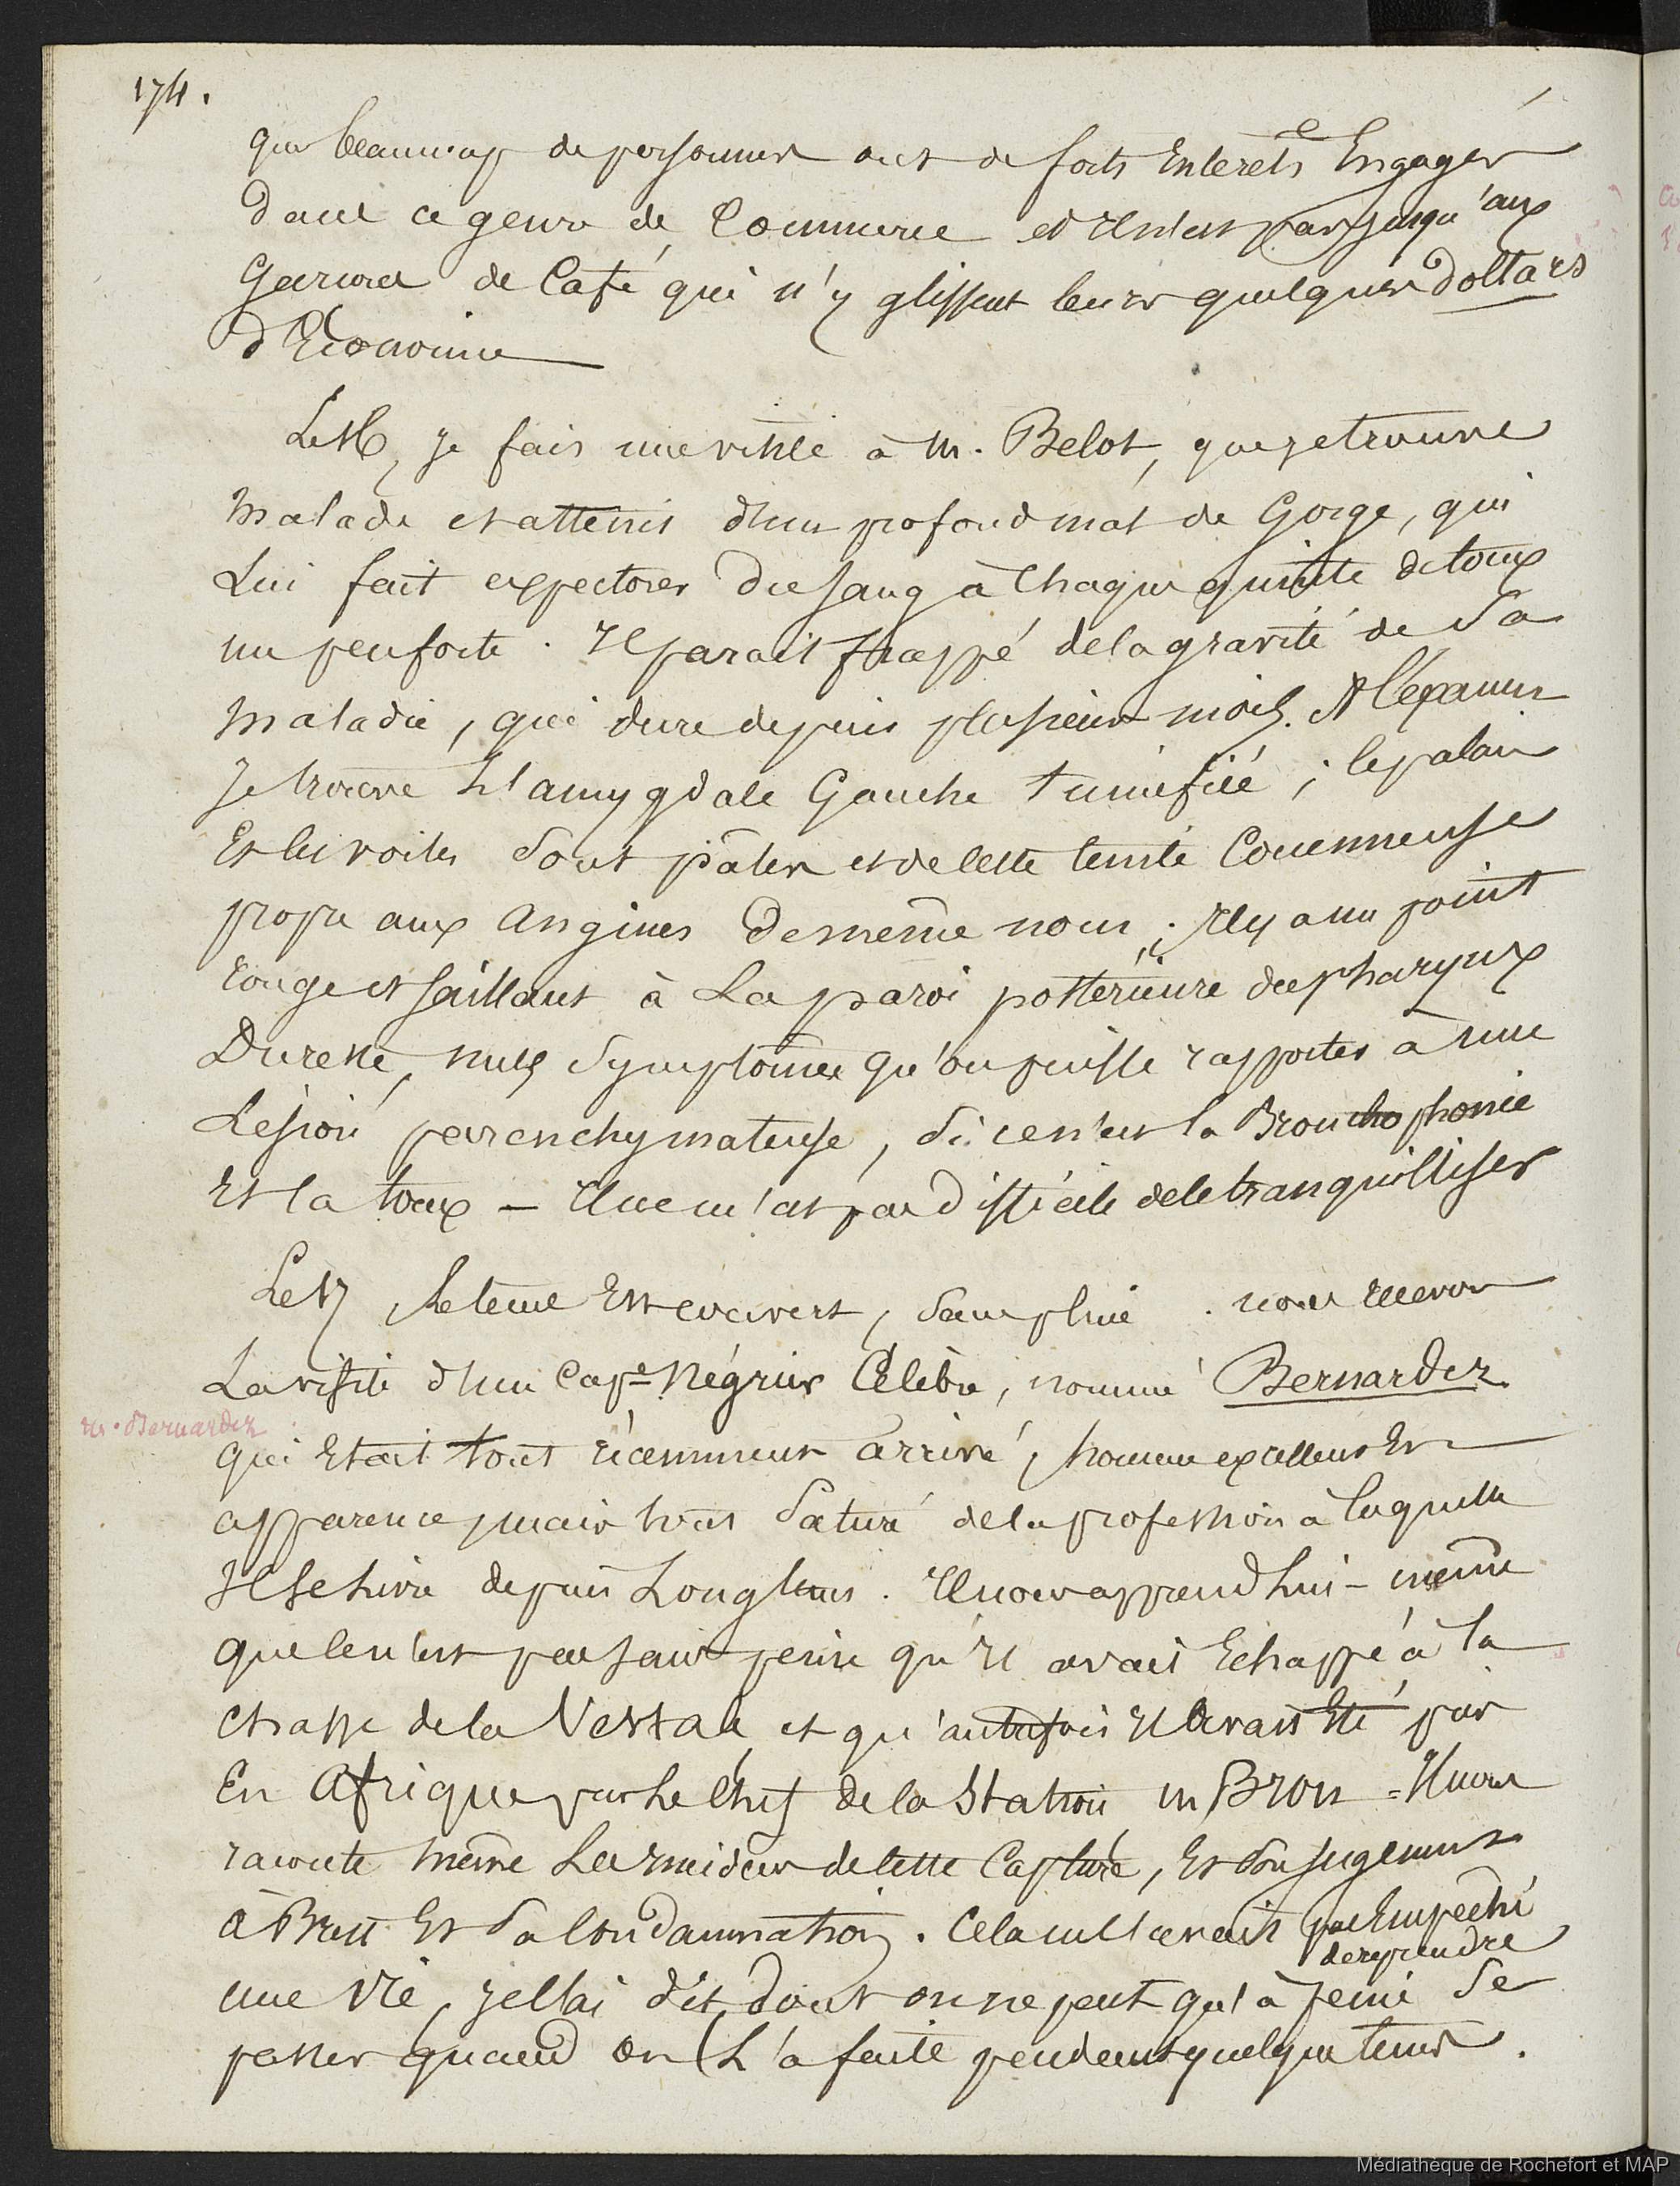 174.
que beaucoup de personnes ont de forts Interets Engagés
dans ce genre de Commerce et Il n'est pas jusqu'aux
Garcons de Café qui n'y glissent leurs quelques dollars
d'Economie
Le 16, je fais une visite à M. Belot, que je trouve
malade et atteint d'un profond mal de Gorge, qui
Lui fait expectorer du sang à Chaque quinte de toux
un peu forte. Il parait frappé de la gravité de Sa
maladie, qui dure depuis plusieurs mois. A l'examen
Je trouve L'amygdale Gauche tuméfiée ; le palais
Et les voiles Sont pâles et de cette teinte Couenneuse
propre aux Angines de même nom ; Il y a un point
rouge et saillant à La paroi postérieure du pharynx
Du reste, nuls Symptômes qu'on puisse rapporter à une
Lésion parenchymateuse, Si ce n'est la Bronchophonie
Et la toux — Il ne m'est pas difficile de le tranquilliser
Le 17 Le tems Est couvert, Sans pluie . nous recevons
La visite d'un Cap.e Négrier Célèbre, nommé Bernardez
M. Bernardez
qui Etait tout récemment arrivé, homme excellent En
apparence, mais tout Saturé de la profession à laquelle
Il se livre depuis Longtems. Il nous apprend Lui-même
que ce n'est pas sans peine qu'Il avait Echappé à la
chasse de la Vestale, et qu'autrefois Il avait Eté pris
En Afrique par Le Chef de la Station, M Brou = Il nous
raconte même Les incidens de cette Capture, Et Son jugement
à Brest Et Sa Condamnation. Cela ne l'avait pas Empeché
de reprendre
une Vie, Je l'ai dit, dont on ne peut qu'à peine Se
passer quand on L'a faite pendant quelque tems.
Médiathèque de Rochefort et MAP